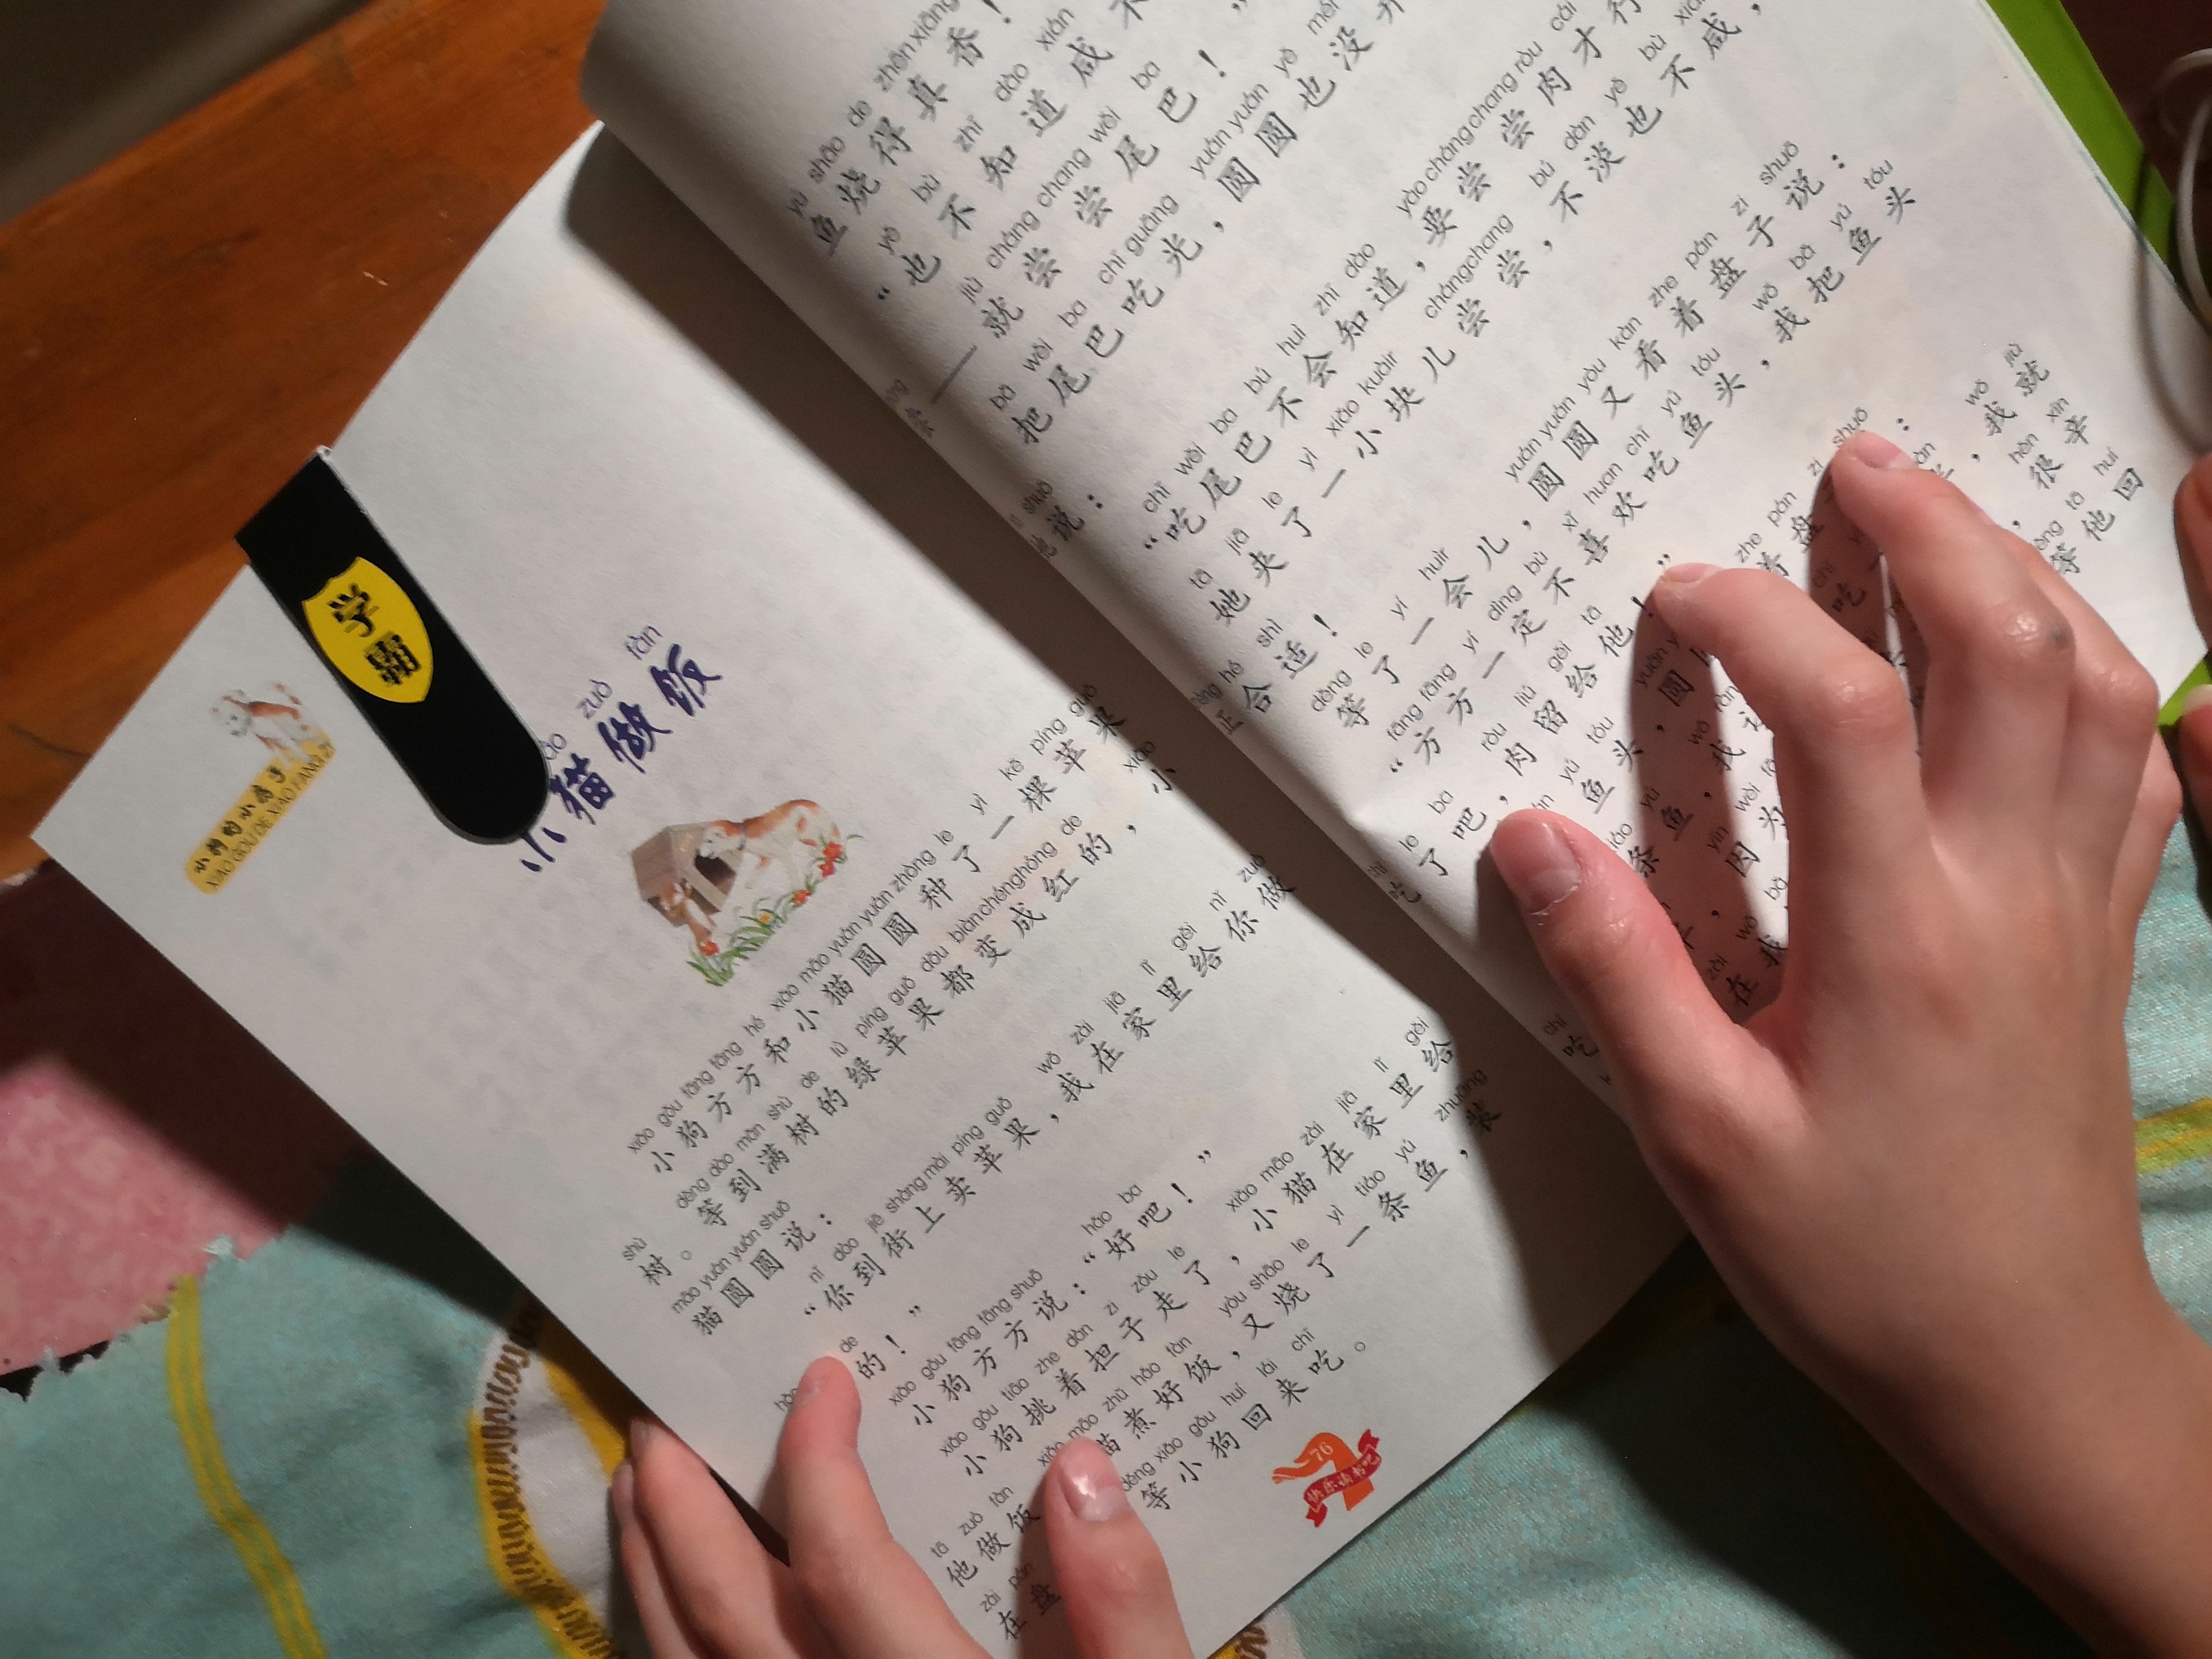 小狗的小房子
XIAO GOU DE XIAO FANG ZI
学霸
zuò fàn
小猫做饭
xiǎo gǒu fāng fāng hé xiǎo māo yuán yuán zhòng le yì kē píng guǒ
小狗方方和小猫圆圆种了一棵苹果
shù děng dào mǎn shù de lǜ píng guǒ dōu biàn chéng hóng de xiǎo
树。等到满树的绿苹果都变成红的，小
māo yuán yuán shuō
猫圆圆说：
nǐ dào jiē shàng mài píng guǒ wǒ zài jiā lǐ gěi nǐ zuò
“你到街上卖苹果，我在家里给你做
de
的！”
xiǎo gǒu fāng fāng shuō hǎo ba
小狗方方说：“好吧！”
xiǎo gǒu tiāo zhe dàn zi zǒu le xiǎo māo zài jiā lǐ gěi
小狗挑着担子走了，小猫在家里给
tā zuò fàn xiǎo māo zhǔ hǎo fàn yòu shāo le yì tiáo yú zhuāng
他做饭 猫煮好饭，又烧了一条鱼，装
zài pán děng xiǎo gǒu huí lái chī
在盘 等小狗回来吃。
76
快乐读书吧
yú shāo de zhēn xiāng
鱼烧得真香！
yě bù zhī dào xián
“也不知道咸不
jiù cháng chang wěi ba
——就尝尝尾巴！”
bǎ wěi ba chī guāng yuán yuán yě méi
把尾巴吃光，圆圆也没
shuō
说：
chī wěi ba bú huì zhī dào yào cháng chang ròu cái
“吃尾巴不会知道，要尝尝肉才行
tā jiā le yì xiǎo kuàir cháng chang bú dàn yě bù xián
她夹了一小块儿尝尝，不淡也不咸，
hé shì
正合适！
děng le yí huìr yuán yuán yòu kàn zhe pán zi shuō
等了一会儿，圆圆又看着盘子说：
fāng fāng yí dìng bù xǐ huan chī yú tóu wǒ bǎ yú tóu
“方方一定不喜欢吃鱼头，我把鱼头
chī le ba ròu liú gěi tā
吃了吧，肉留给他！”
yú tóu
鱼头，圆
zhe pán zi shuō
着盘 ：
条鱼，我 吃 ，我就
wǒ jiù
yīn wèi hěn xīn
因为 很辛
zài wǒ děng tā huí
在我 等他回
chī
吃